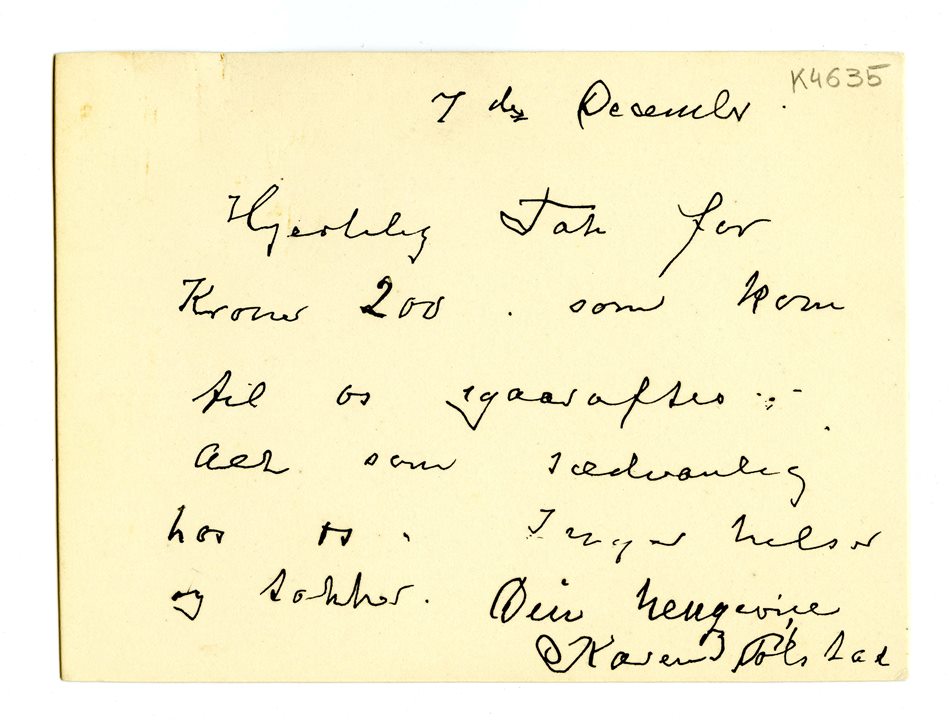 K4635
7 des December.
Hjertelig Tak for
Kroner 200. som kom
til os igaaraftes
Alt som sædvanlig
hos os. Inger hilser
og takker. Din hengivne
Karen